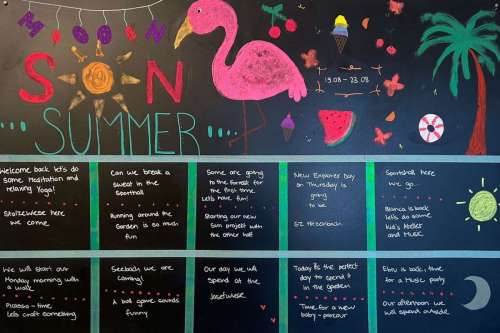 MOON
SUN
SUMMER
19.08 - 23.08
Welcome back let's do
some Meditation and
relaxing Yoga!
Stolzewiese here
we come
Can we break a
sweat in the
Sporthall
Running around the
Garden is so much
fun
Some are going
to the forest for
the first time
Let's have fun!
Starting our new
Sun project with
the other half
New Explorer Day
on Thursday is
going
to be
SZ Hirzenbach
Sportshall here
we go...
Bianca is back
let's do some
kid's Atelier
and Music
We will start our
Monday morning with
a walk
Picasso-time,
Let's craft something
Seebach we are
coming!
A ball game sounds
funny
Our day we will
spend at the
Insetwiese
Today is the perfect
day to spend it
in the garden
Time for a new
baby-parcour
Ebru is back, time
for a Music party
Our afternoon we will
spend outside